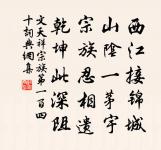 西江接錦城
山陰一茅宇
宗族忍相遺
乾坤此深阻
文天祥宗族第一百四
十詞典網集